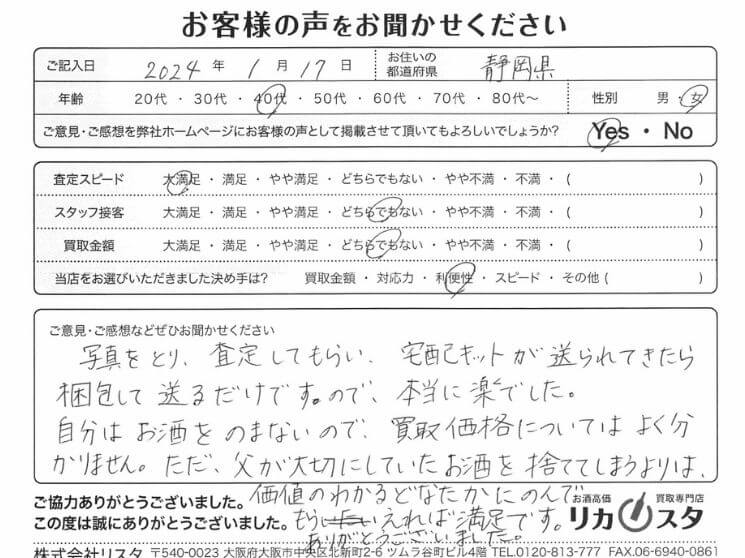 お客様の声をお聞かせください
ご記入日 2024 年 1 月 17 日 お住いの都道府県 静岡県
年齢 20代 ・ 30代 ・ 40代 ・ 50代 ・ 60代 ・ 70代 ・ 80代～ 性別 男 ・ 女
ご意見・ご感想を弊社ホームページにお客様の声として掲載させて頂いてもよろしいでしょうか? Yes ・ No
査定スピード 大満足 ・ 満足 ・ やや満足 ・ どちらでもない ・ やや不満 ・ 不満 ・ ( )
スタッフ接客 大満足 ・ 満足 ・ やや満足 ・ どちらでもない ・ やや不満 ・ 不満 ・ ( )
買取金額 大満足 ・ 満足 ・ やや満足 ・ どちらでもない ・ やや不満 ・ 不満 ・ ( )
当店をお選びいただきました決め手は? 買取金額 ・ 対応力 ・ 利便性 ・ スピード ・ その他 ( )
ご意見・ご感想などぜひお聞かせください
写真をとり、査定してもらい、宅配キットが送られてきたら
梱包して送るだけです。ので、本当に楽でした。
自分はお酒をのまないので、買取価格についてはよく分
かりません。ただ、父が大切にしていたお酒を捨ててしまうよりは、
価値のわかるどなたかにのんで
もらえれば満足です。
ありがとうございました。
ご協力ありがとうございました。
この度は誠にありがとうございました。
お酒高価 買取専門店
リカスタ
株式会社リスタ 〒540-0023 大阪府大阪市中央区北新町2-6 ツムラ谷町ビル4階 TEL.0120-813-777 FAX.06-6940-0861